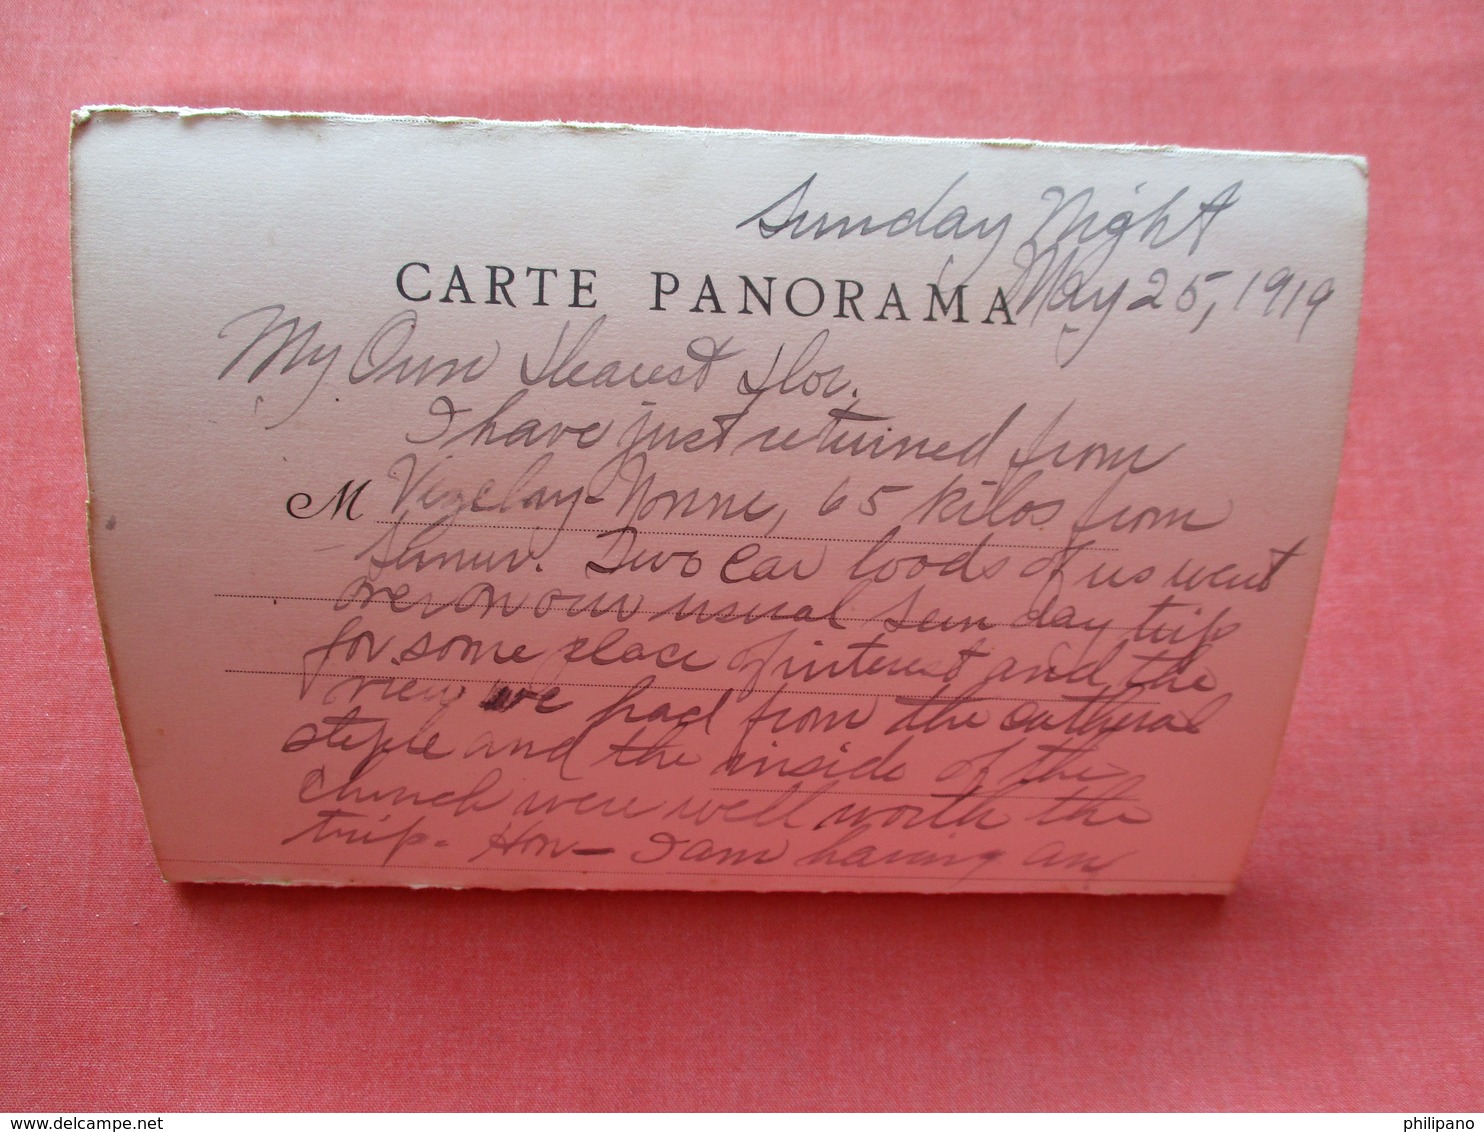 Sunday Night
May 25, 1919
CARTE PANORAMA
My Own Dearest Flor.
I have just returned from
M Vezelay-Yonne, 65 kilos from
Semur. Two car loads of us went
over on our usual Sunday trip
for some place of interest and the
view we had from the cathedral
steple and the inside of the
church were well worth the
trip. Hon- I am having an
delcampe.net
philipano